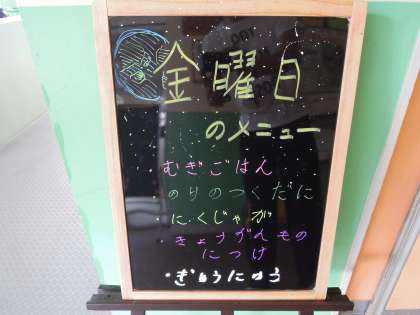 金曜日
のメニュー
むぎごはん
のりのつくだに
にくじゃが
・きょうがんもの
につけ
・ぎゅうにゅう